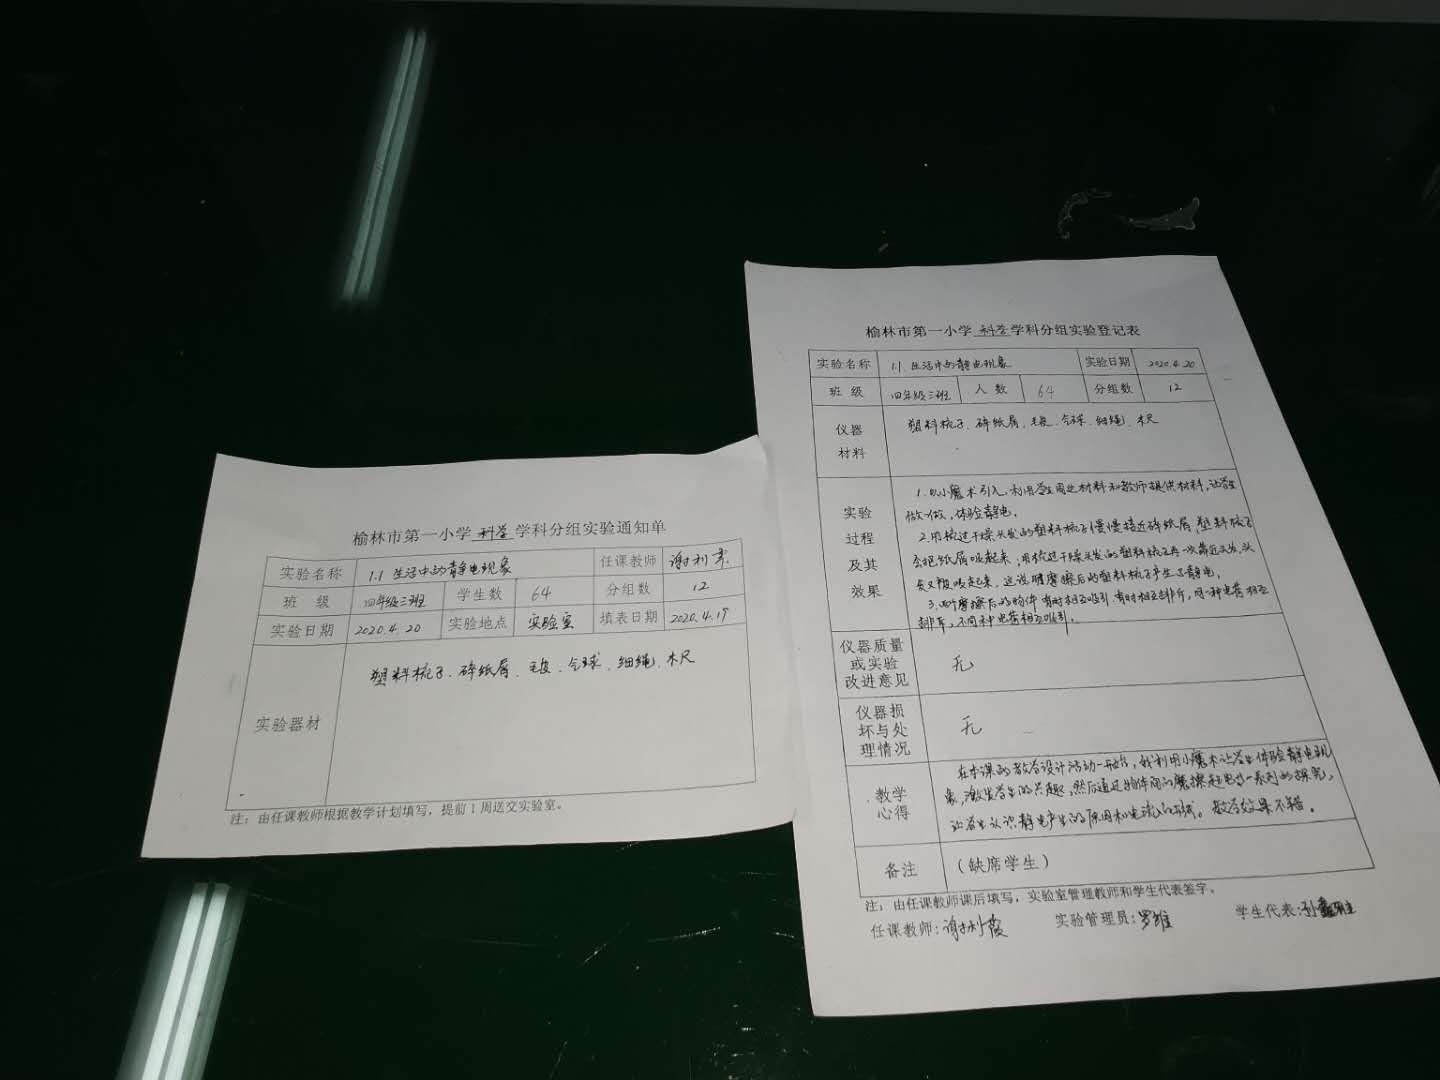 榆林市第一小学 科学 学科分组实验通知单
实验名称 1.1 生活中的静电现象 任课教师 谢利霞
班 级 四年级三班 学生数 64 分组数 12
实验日期 2020.4.20 实验地点 实验室 填表日期 2020.4.19
实验器材 塑料梳子、碎纸屑、毛皮、气球、细绳、木尺
注:由任课教师根据教学计划填写,提前1周送交实验室。
榆林市第一小学 科学 学科分组实验登记表
实验名称 1.1 生活中的静电现象 实验日期 2020.4.20
班 级 四年级三班 人 数 64 分组数 12
仪器
材料
塑料梳子、碎纸屑、毛皮、气球、细绳、木尺
实验
过程
及其
效果
1.以小魔术引入,利用学生周边材料和教师提供材料,让学生
做一做,体验静电。
2.用梳过干燥头发的塑料梳子慢慢接近碎纸屑,塑料梳子
会把纸屑吸起来,用梳过干燥头发的塑料梳子再一次靠近头发,头
发又被吸起来,这说明摩擦后的塑料梳子产生了静电。
3.摩擦后的物体有时相互吸引,有时相互排斥,同一种电荷相互
排斥,不同种电荷相互吸引。
仪器质量
或实验
改进意见
无
仪器损
坏与处
理情况
无
教学
心得
在本课的教学设计活动一开始,我利用小魔术让学生体验静电现
象,激发学生的兴趣,然后通过物体间的摩擦起电等一系列的探究,
让学生认识静电产生的原因和电流的形成。教学效果不错。
备注 (缺席学生)
注:由任课教师课后填写,实验室管理教师和学生代表签字。
任课教师:谢利霞 实验管理员:罗维 学生代表:孙